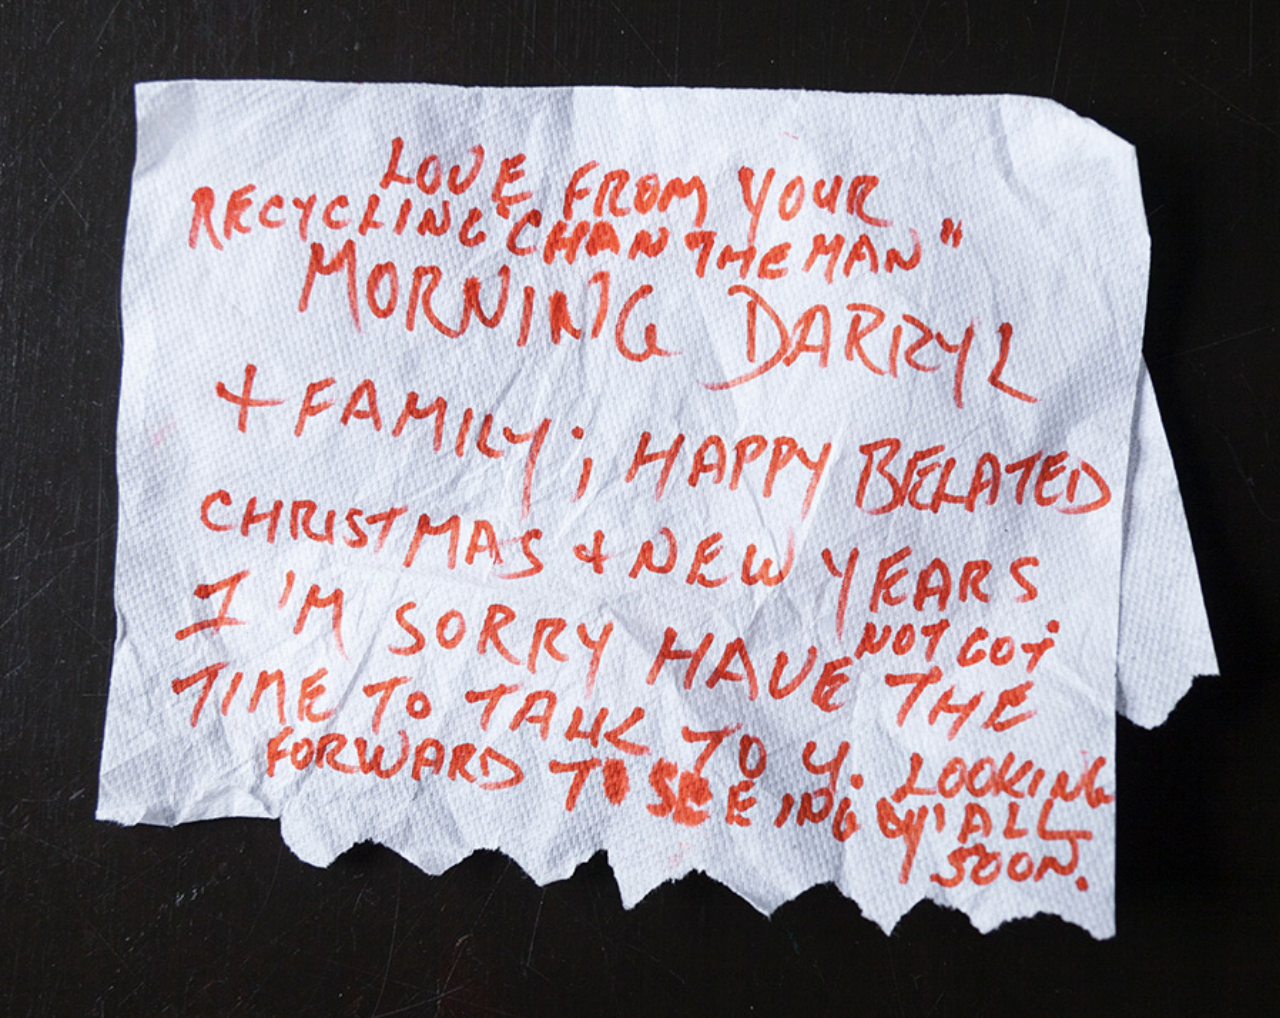 LOVE FROM YOUR
RECYCLING "CHAN THE MAN"
MORNING DARRYL
+ FAMILY; HAPPY BELATED
CHRISTMAS + NEW YEARS
I'M SORRY HAVE NOT GOT THE
TIME TO TALK TO Y. LOOKING
FORWARD TO SEEING Y'ALL
SOON.